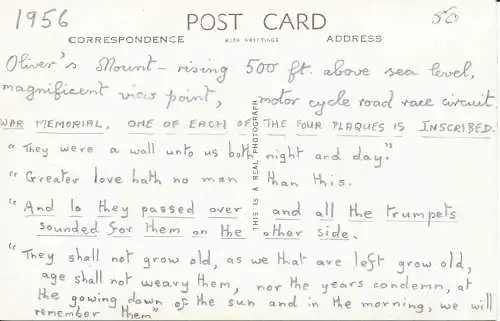 1956
50
POST CARD
CORRESPONDENCE WITH GREETINGS ADDRESS
Oliver's Mount – rising 500 ft. above sea level,
magnificent view point, motor cycle road race circuit.
WAR MEMORIAL. ONE OF EACH OF THE FOUR PLAQUES IS INSCRIBED.
"They were a wall unto us both night and day."
"Greater love hath no man than this.
"And lo they passed over and all the trumpets
sounded for them on the other side.
"They shall not grow old, as we that are left grow old,
age shall not weary them, nor the years condemn, at
the gowing down of the sun and in the morning, we will
remember them"
THIS IS A REAL PHOTOGRAPH